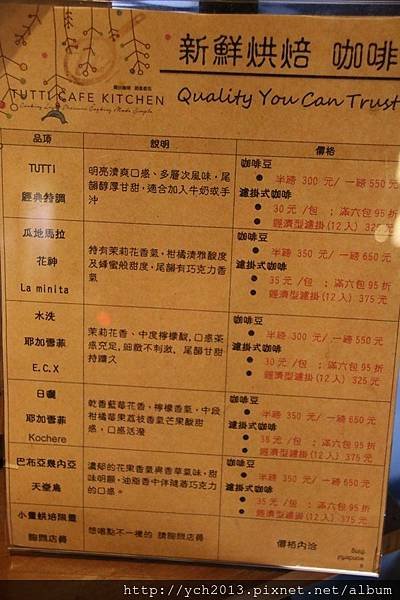 新鮮烘焙 咖啡
TUTTI CAFE KITCHEN
Quality You Can Trust
品項 說明 價格
TUTTI
經典特調
明亮清爽口感、多層次風味,尾
韻醇厚甘甜,適合加入牛奶或手
沖
咖啡豆
● 半磅 300 元/ 一磅 550 元
濾掛式咖啡
● 30 元 /包 ; 滿六包 95 折
● 經濟型濾掛(12 入) 325 元
瓜地馬拉
花神
La minita
特有茉莉花香氣,柑橘清雅酸度
及蜂蜜般甜度,尾韻有巧克力香
氣
咖啡豆
● 半磅 350 元/ 一磅 650 元
濾掛式咖啡
● 35 元 /包 ; 滿六包 95 折
● 經濟型濾掛(12 入) 375 元
水洗
耶加雪菲
E.C.X
茉莉花香、中度檸檬酸,口感茶
感充足,細緻不刺激, 尾韻甘甜
持續久
咖啡豆
● 半磅 300 元/ 一磅 550 元
濾掛式咖啡
● 30 元 /包 ; 滿六包 95 折
● 經濟型濾掛(12 入) 325 元
日曬
耶加雪菲
Kochere
乾香藍莓花香、檸檬香氣,中段
柑橘莓果荔枝香氣芒果酸甜
感,口感活潑
咖啡豆
● 半磅 350 元/ 一磅 650 元
濾掛式咖啡
● 35 元 /包 ; 滿六包 95 折
● 經濟型濾掛(12 入) 375 元
巴布亞幾內亞
天堂鳥
濃郁的花果香氣與香草氣味,甜
味明顯,油脂香中伴隨著巧克力
的口感。
咖啡豆
● 半磅 350 元/ 一磅 650 元
濾掛式咖啡
● 35 元 /包 ; 滿六包 95 折
● 經濟型濾掛(12 入) 375 元
小量烘焙限量
詢問店員
想喝點不一樣的 請詢問店員
價格內洽
http://ych2013.pixnet.net/album